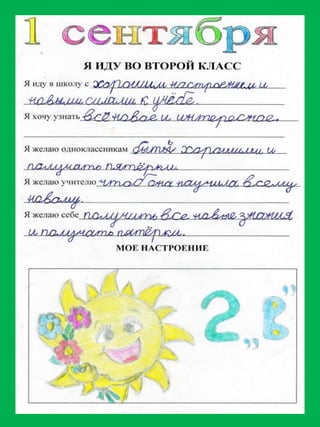 1 сентября
Я ИДУ ВО ВТОРОЙ КЛАСС
Я иду в школу с хорошим настроением и
новыми силами к учёбе.
Я хочу узнать всё новое и интересное.
Я желаю одноклассникам быть хорошими и
получать пятёрки.
Я желаю учителю чтоб она научила всему
новому.
Я желаю себе получить все новые знания
и получать пятёрки.
МОЕ НАСТРОЕНИЕ
2 "В"